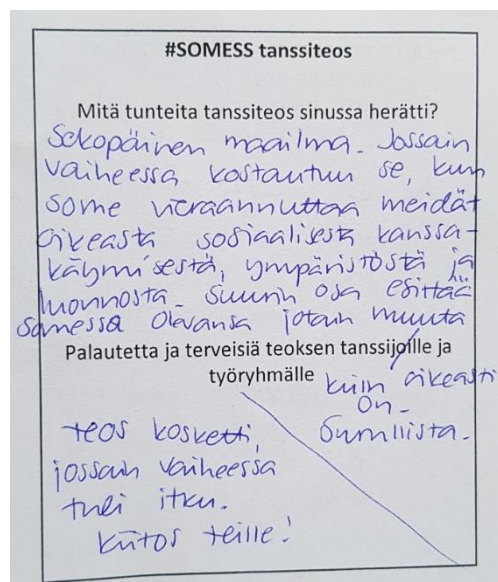 #SOMESS tanssiteos
Mitä tunteita tanssiteos sinussa herätti?
Sekopäinen maailma. Jossain
vaiheessa kostautuu se, kun
some vieraannuttaa meidät
oikeasta sosiaalisesta kanssa-
käymisestä, ympäristöstä ja
luonnosta. Suurin osa esittää
somessa olevansa jotain muuta
kuin oikeasti
on.
Surullista.
Palautetta ja terveisiä teoksen tanssijoille ja
työryhmälle
teos kosketti,
jossain vaiheessa
tuli itku.
Kiitos teille!